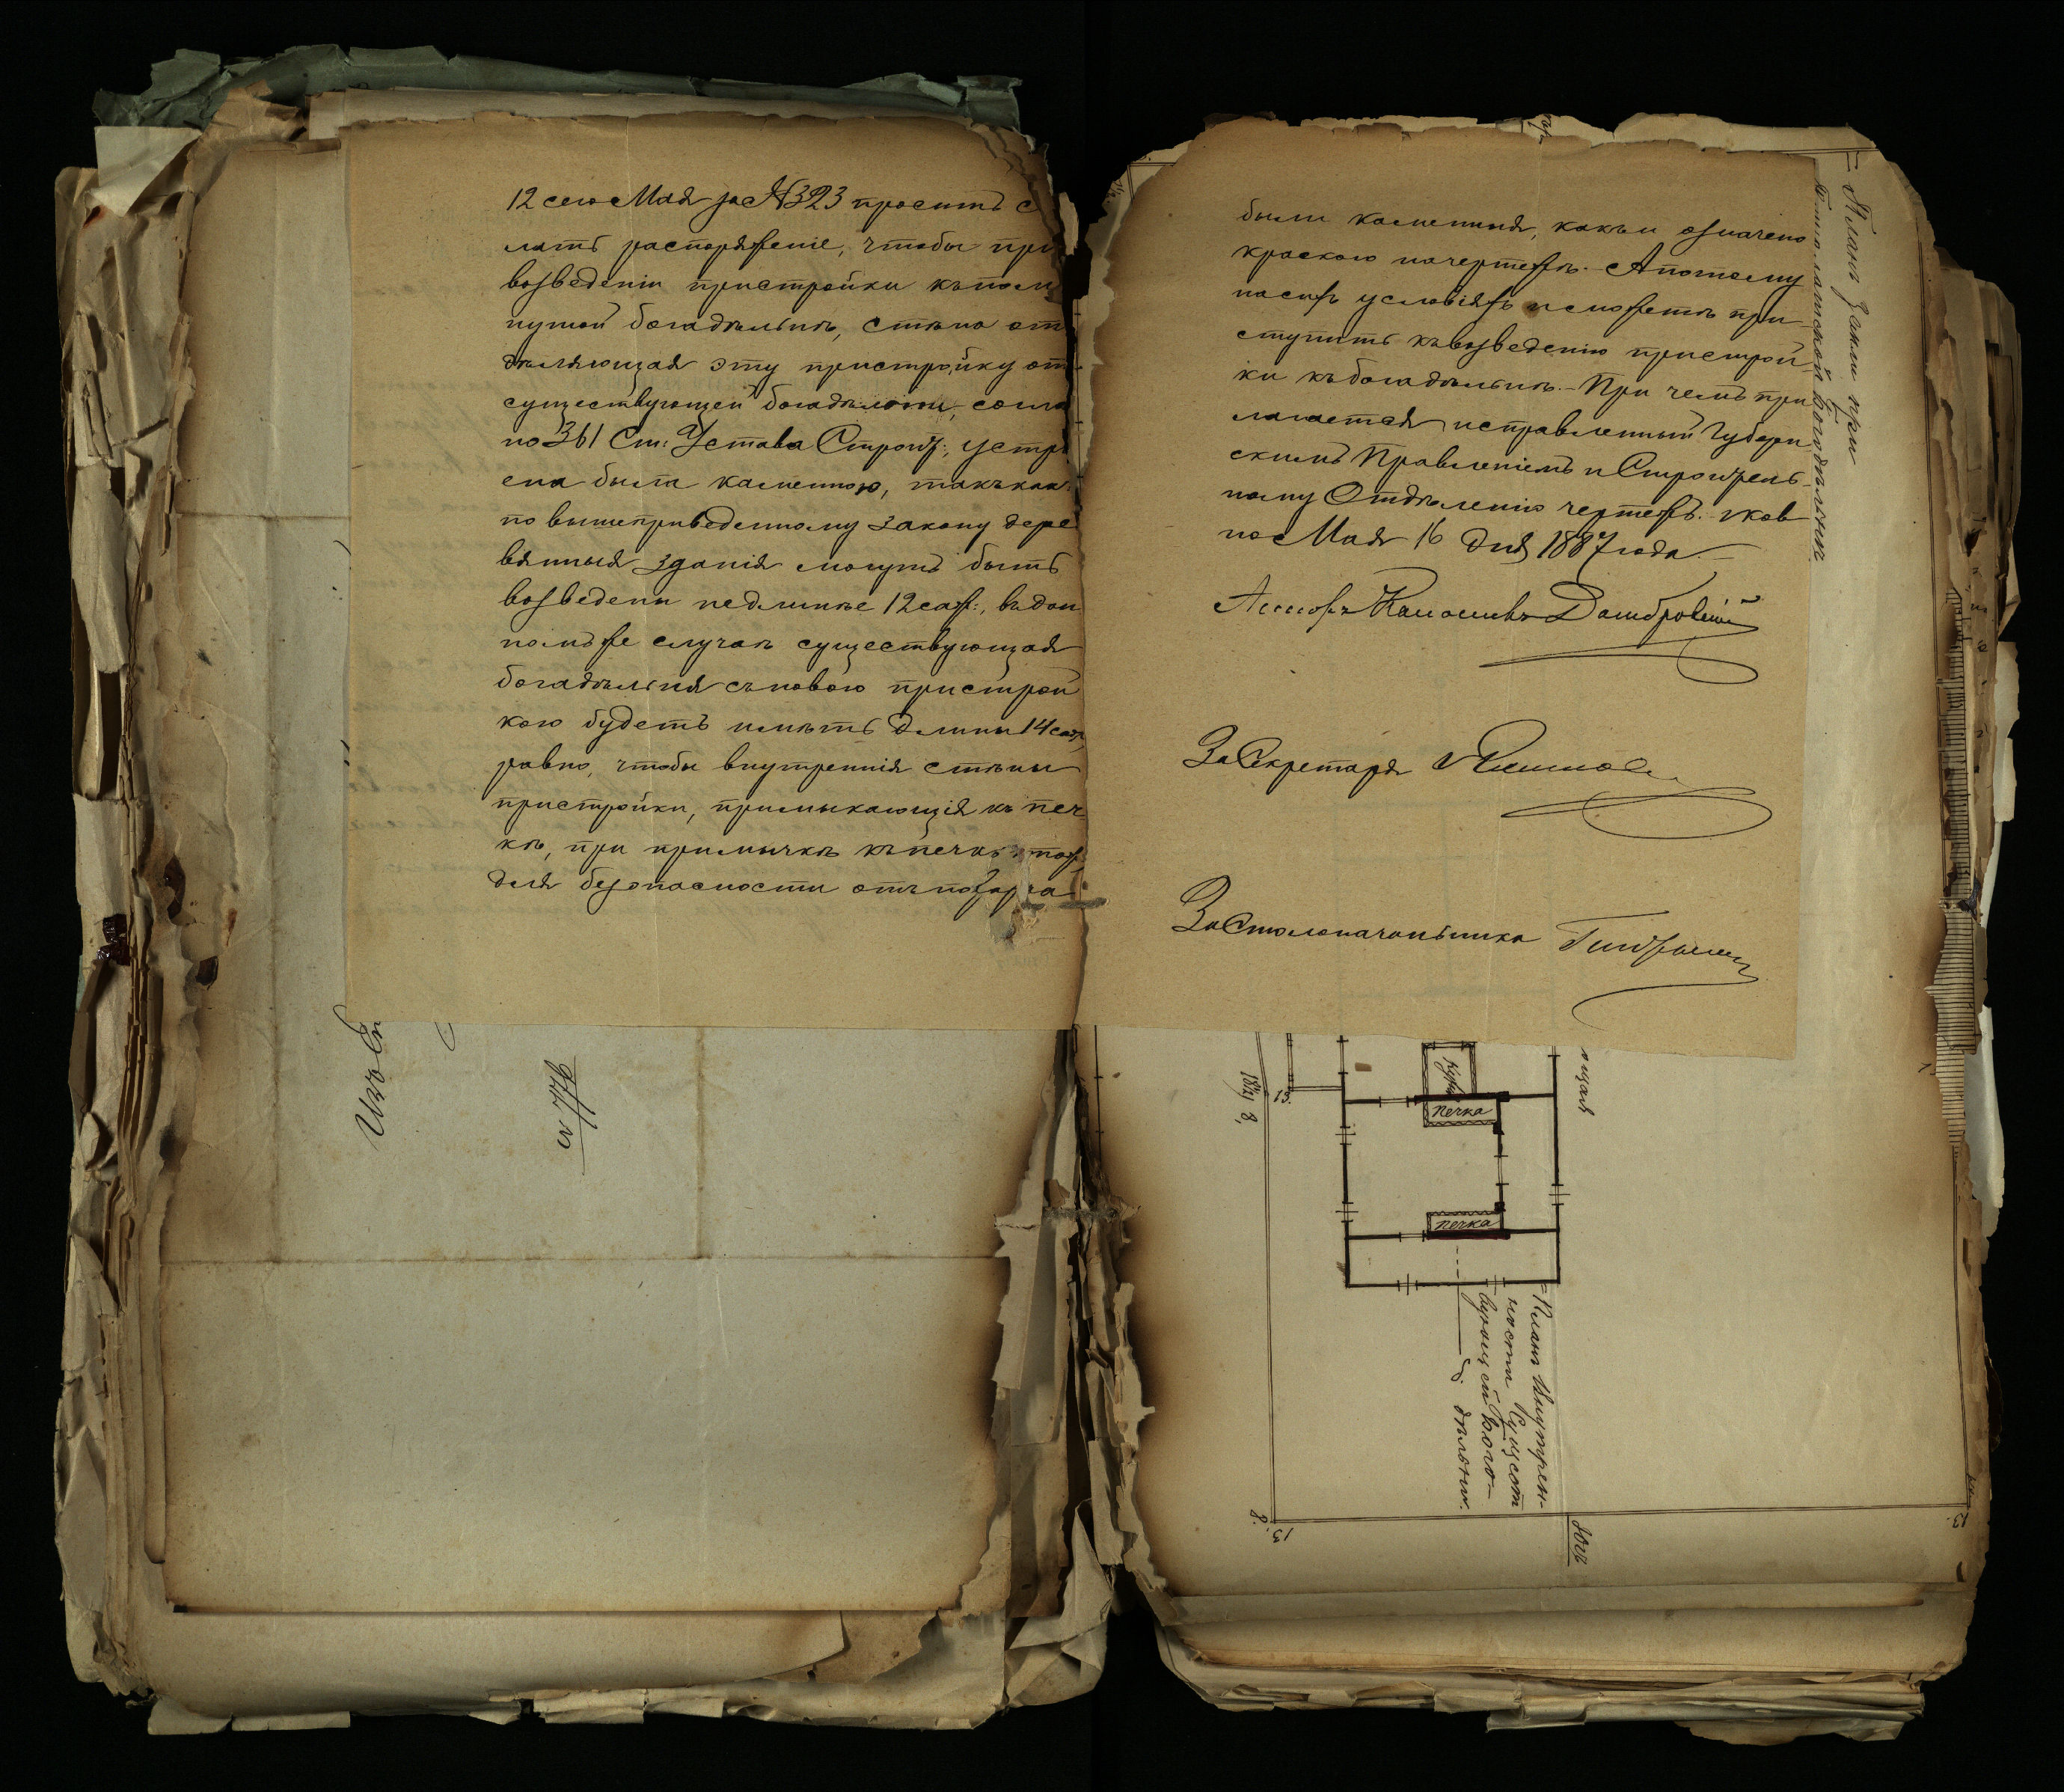 12 сего Мая за №323 проситъ с
лать распоряженіе, чтобы при
возведеніи пристройки къ пом
нутой богадѣльнѣ, стѣна от
дѣляющая эту пристройку от
существующей богадѣльни, согла
но 361 Ст: Устава Строит:, устро
ена была каменною, такъ как
по вышеприведенному закону дере
вянныя зданія могутъ быть
возведены не длиннѣе 12 саж:, въ дан
номъ же случаѣ существующая
богадѣльня съ новою пристрой
кою будетъ имѣть длины 14 саж,
равно, чтобы внутреннія стѣны
пристройки, примыкающія къ печ
кѣ, при примычкѣ къ печкѣ
для безопасности отъ пожара
были каменныя, какъ и означено
краскою на чертежѣ. А потому
на сихъ условіяхъ и можетъ при
ступить къ возведенію пристрой
ки къ богадѣльнѣ. При чемъ при
лагается исправленный Губерн
скимъ Правленіемъ и Строитель
ному Отдѣленію чертежъ. г Ков
но Мая 16 дня 1887 года.
Ассесоръ Домбровскій
За Секретаря
За Столоначальника
Планъ земли при
Богодѣльнѣ.
№ 776
кухня
печка
печка
=Планъ внутрен-
ности сущест
вующей Бого-
дѣльни.
13.
8.
13
13.